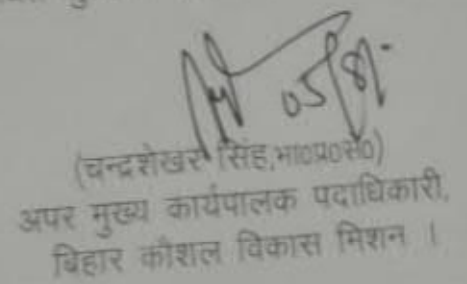 05/8/-
(चन्द्रशेखर सिंह,भा०प्र०से०)
अपर मुख्य कार्यपालक पदाधिकारी,
बिहार कौशल विकास मिशन ।